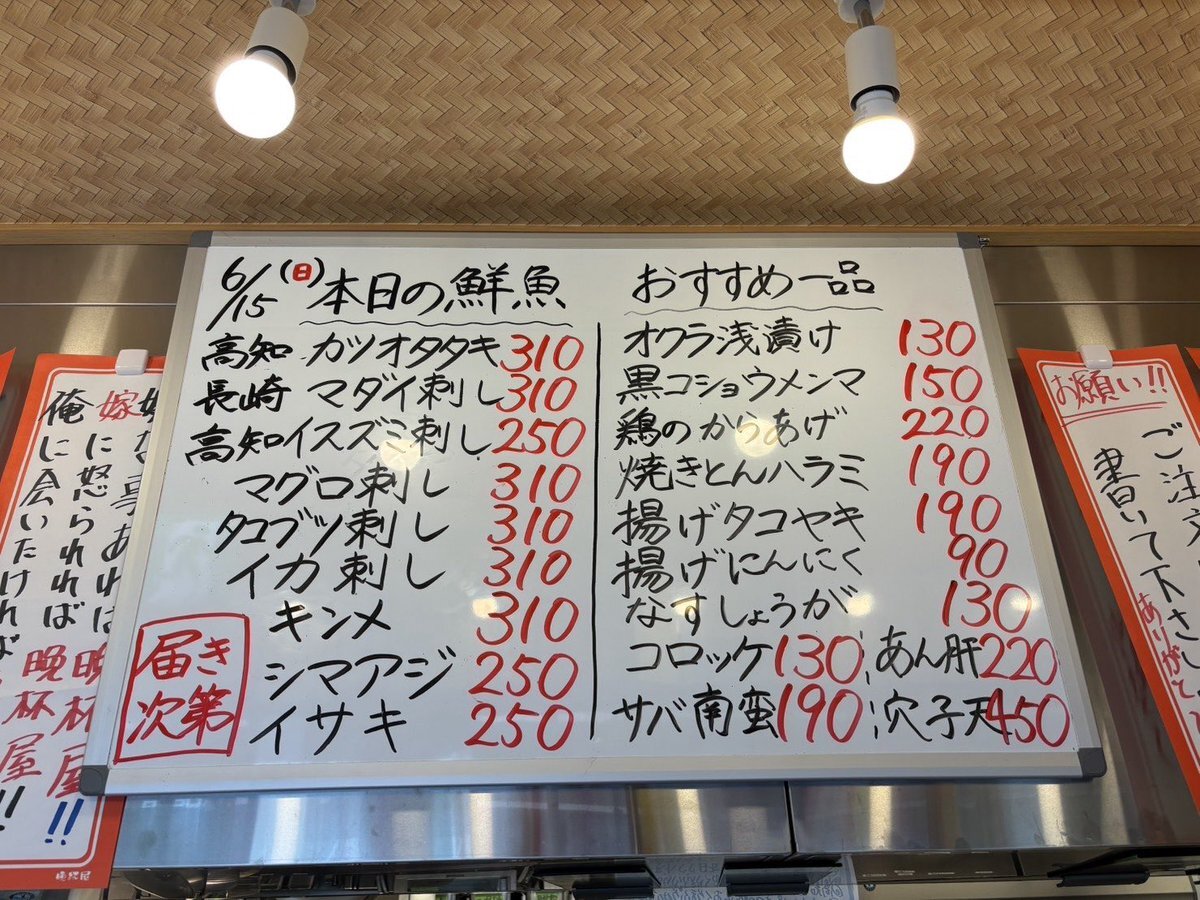 6/15(日) 本日の鮮魚
高知 カツオタタキ 310
長崎 マダイ刺し 310
高知イスズミ刺し 250
マグロ刺し 310
タコブツ刺し 310
イカ刺し 310
キンメ 310
シマアジ 250
イサキ 250
届き
次第
おすすめ一品
オクラ浅漬け 130
黒コショウメンマ 150
鶏のからあげ 220
焼きとんハラミ 190
揚げタコヤキ 190
揚げにんにく 90
なすしょうが 130
コロッケ130 あん肝220
サバ南蛮190 穴子天450
嫁に怒られれば晩杯屋!!
俺に会いたければ
晩杯屋!!
お願い!!
ご注文
書いて下さい
ありがて